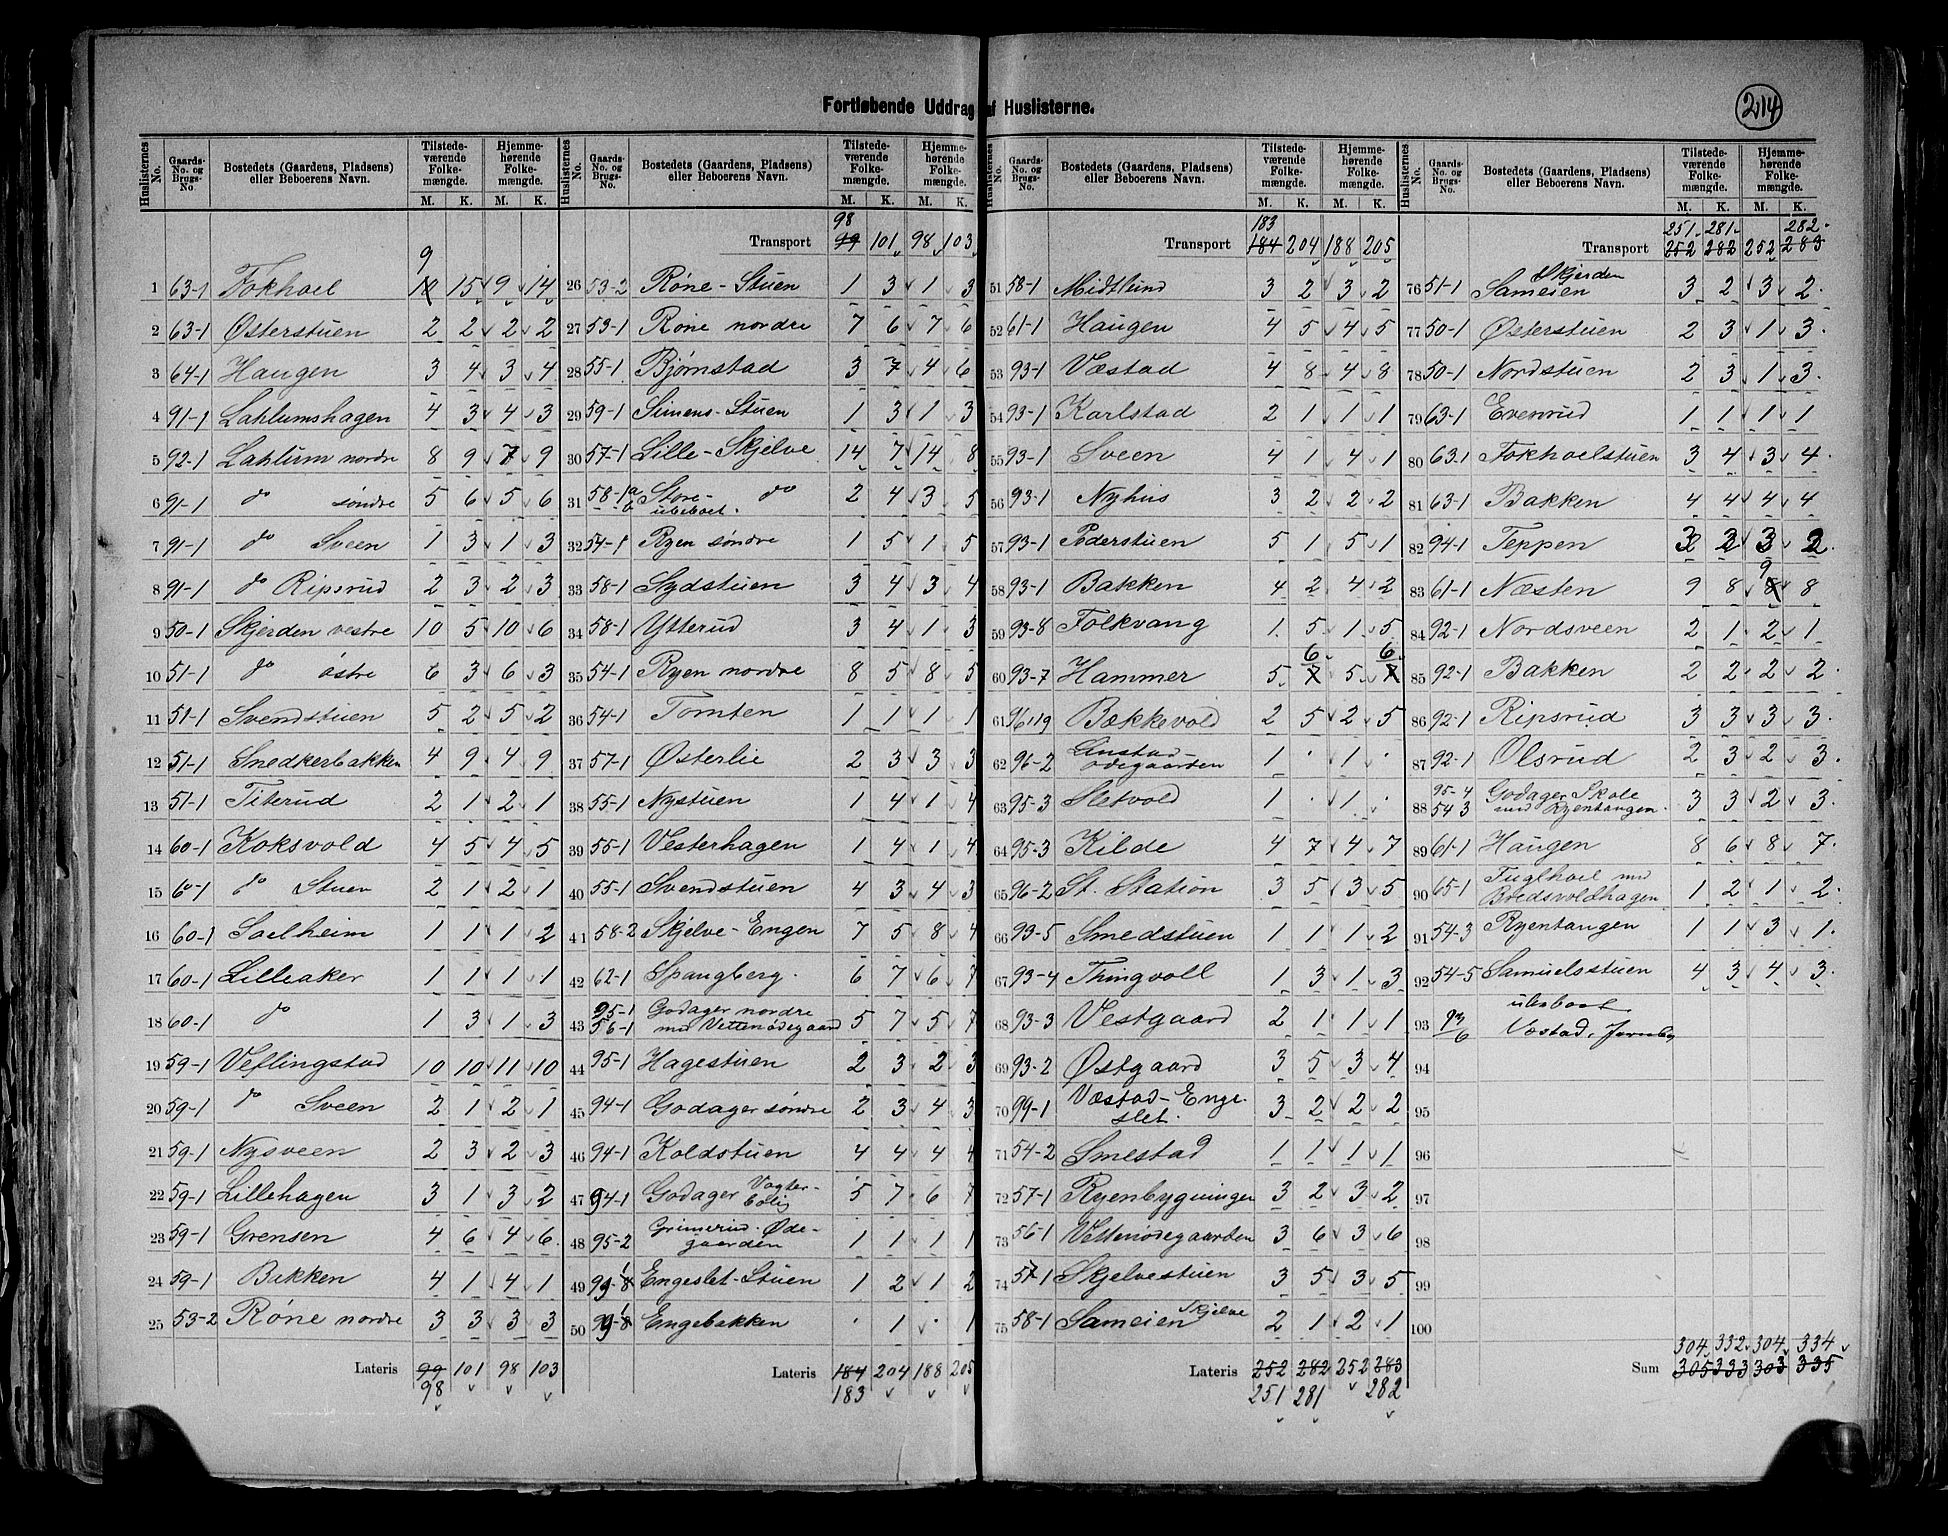 Fortløbende Uddrag af Huslisterne.
214
Huslisternes No. Gaards-No. og Brugs-No. Bostedets (Gaardens, Pladsens) eller Beboerens Navn. Tilstedeværende Folkemængde. M. K. Hjemmehørende Folkemængde. M. K.
9
1 63-1 Fokhoel 10 15 9 14
2 63-1 Østerstuen 2 2 2 2
3 64-1 Haugen 3 4 3 4
4 91-1 Lahlumshagen 4 3 4 3
5 92-1 Lahlum nordre 8 9 7 9
6 91-1 do søndre 5 6 5 6
7 91-1 do Sveen 1 3 1 3
8 91-1 do Ripsrud 2 3 2 3
9 50-1 Skjerden vestre 10 5 10 6
10 51-1 do östre 6 3 6 3
11 51-1 Svendstuen 5 2 5 2
12 51-1 Snedkerbakken 4 9 4 9
13 51-1 Titerud 2 1 2 1
14 60-1 Koksvold 4 5 4 5
15 60-1 do Stuen 2 1 2 1
16 60-1 Solheim 1 1 1 2
17 60-1 Lilleaker 1 1 1 1
18 60-1 do 1 3 1 3
19 59-1 Veflingstad 10 10 11 10
20 59-1 do Sveen 2 1 2 1
21 59-1 Nysveen 2 3 2 3
22 59-1 Lillehagen 3 1 3 2
23 59-1 Grensen 4 6 4 6
24 59-1 Bakken 4 1 4 1
25 53-2 Røne nordre 3 3 3 3
Lateris 99 101 98 103
98
Huslisternes No. Gaards-No. og Brugs-No. Bostedets (Gaardens, Pladsens) eller Beboerens Navn. Tilstedeværende Folkemængde. M. K. Hjemmehørende Folkemængde. M. K.
98
Transport 99 101 98 103
26 53-2 Røne-Stuen 1 3 1 3
27 53-1 Røne nordre 7 6 7 6
28 55-1 Bjørnstad 3 7 4 6
29 59-1 Simens-Stuen 1 3 1 3
30 57-1 Lille-Skjelve 14 7 14 8
31 58-1 Store- do 2 4 3 5
ubeboet.
32 54-1 Ryen søndre 1 5 1 5
33 58-1 Sydstuen 3 4 3 4
34 58-1 Ytterud 3 4 1 3
35 54-1 Ryen nordre 8 5 8 5
36 54-1 Tomten 1 1 1 1
37 57-1 Østerlie 2 3 3 3
38 55-1 Nystuen 1 4 1 4
39 55-1 Vesterhagen 1 4 1 4
40 55-1 Svendstuen 4 3 4 3
41 58-2 Skjelve-Engen 7 5 8 4
42 62-1 Spangberg. 6 7 6 7
95-1 Godager nordre
43 56-1 med Vettenødegaard 5 7 5 7
44 95-1 Hagestuen 2 3 2 3
45 94-1 Godager søndre 2 3 4 3
46 94-1 Koldstuen 4 4 4 4
47 94-1 Godager Vogterbolig 5 7 6 7
48 95-2 Grimerud-Ødegaarden 1 1 1 1
49 Engeslet-Stuen 1 2 1 2
50 Engebakken · 1 · 1
Lateris 184 204 188 205
183
Huslisternes No. Gaards-No. og Brugs-No. Bostedets (Gaardens, Pladsens) eller Beboerens Navn. Tilstedeværende Folkemængde. M. K. Hjemmehørende Folkemængde. M. K.
183
Transport 184 204 188 205
51 58-1 Midtlund 3 2 3 2
52 61-1 Haugen 4 5 4 5
53 93-1 Væstad 4 8 4 8
54 93-1 Karlstad 2 1 1 1
55 93-1 Sveen 4 1 4 1
56 93-1 Nyhus 3 2 2 2
57 93-1 Pederstuen 5 1 5 1
58 93-1 Bakken 4 2 4 2
59 93-8 Folkvang 1 5 1 5
6 6
60 93-7 Hammer 5 7 5 7
61 96,19 Bækkevold 2 5 2 5
62 96-2 ødegaarden 1 · 1 ·
63 95-3 Sletvold 1 · 1 ·
64 95-3 Kilde 4 7 4 7
65 96-2 St. Station 3 5 3 5
66 93-5 Smedstuen 1 1 1 2
67 93-4 Thingvoll 1 3 1 3
68 93-3 Vestgaard 2 1 1 1
69 93-2 Østgaard 3 5 3 4
70 99-1 Væstad-Engeslet. 3 2 2 2
71 54-2 Smestad 1 1 1 1
72 57-1 Ryenbygningen 3 2 3 2
73 56-1 Vettenødegaarden 3 6 3 6
74 57-1 Skjelvestuen 3 5 3 5
75 58-1 Sameien Skjelve 2 1 2 1
Lateris 252 282 252 283
251 281 282
Huslisternes No. Gaards-No. og Brugs-No. Bostedets (Gaardens, Pladsens) eller Beboerens Navn. Tilstedeværende Folkemængde. M. K. Hjemmehørende Folkemængde. M. K.
251 281 282
Transport 252 282 252 283
76 51-1 Sameien Skjerden 3 2 3 2
77 50-1 Østerstuen 2 3 1 3
78 50-1 Nordstuen 2 3 1 3
79 63-1 Evenrud 1 1 1 1
80 63-1 Fokhoelstuen 3 4 3 4
81 63-1 Bakken 4 4 4 4
82 94-1 Teppen 3 2 3 2
9
83 61-1 Næsten 9 8 8 8
84 92-1 Nordsveen 2 1 2 1
85 92-1 Bakken 2 2 2 2
86 92-1 Ripsrud 3 3 3 3
87 92-1 Olsrud 2 3 2 3
95-4 Godager Skole
88 54 3 med Ryentangen. 3 3 2 3
89 61-1 Haugen 8 6 8 7
90 65-1 Fuglhoel med Bredsvoldhagen 1 2 1 2
91 54-3 Ryentangen 1 1 3 1
92 54-5 Samuelsstuen 4 3 4 3
ubeboet
93 93/6 Væstad,
94
95
96
97
98
99
100
304 332 304 334
Sum 305 333 303 335